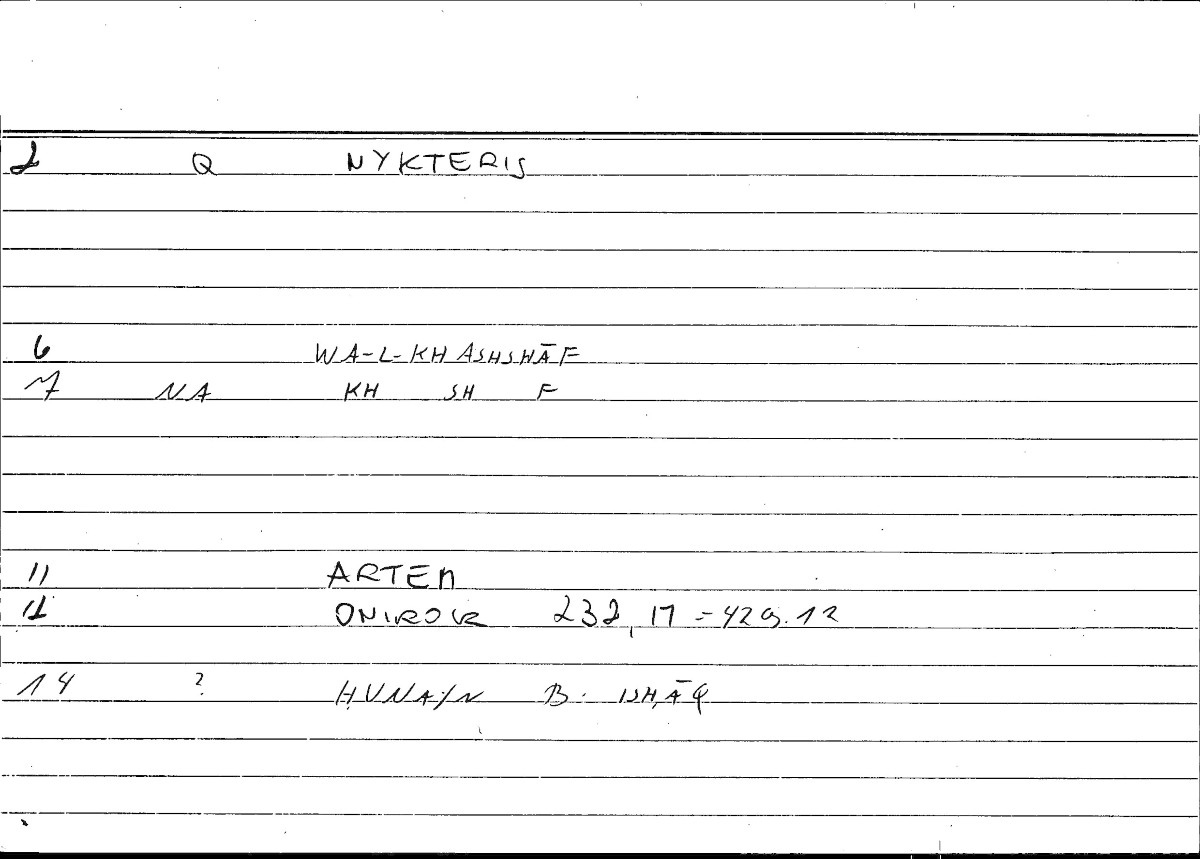 2 Q NYKTERIS
6 WA-L-KHASHSHĀF
7 NA KH SH F
11 ARTEM
12 ONIROCR 232,17 = 429.12
14 ? ḤUNAIN B. ISḤĀQ